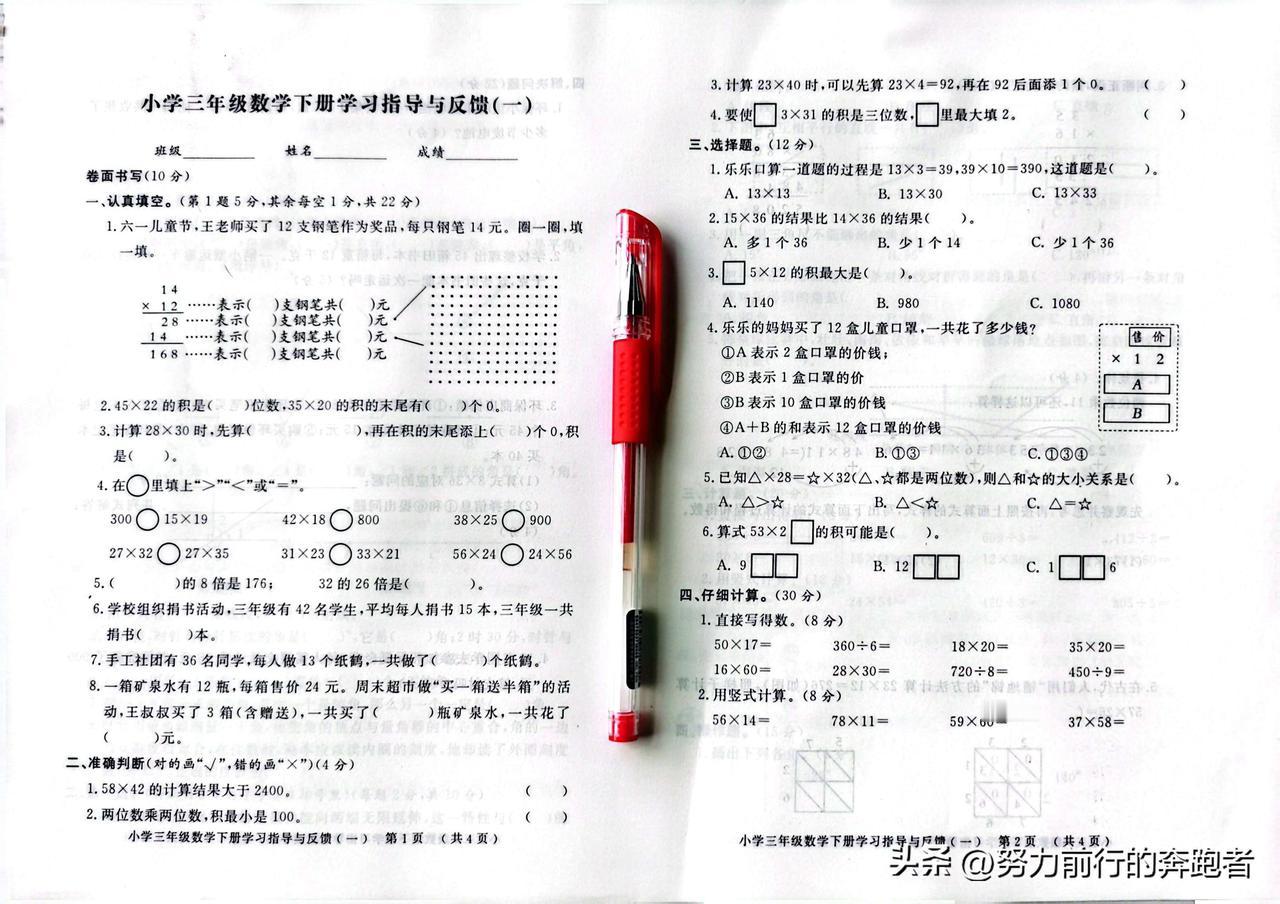 小学三年级数学下册学习指导与反馈(一)
班级________ 姓名________ 成绩________
卷面书写(10分)
一、认真填空。(第1题5分,其余每空1分,共22分)
1.六一儿童节,王老师买了12支钢笔作为奖品,每只钢笔14元。圈一圈,填
一填。
14
×12……表示( )支钢笔共( )元
28……表示( )支钢笔共( )元
14……表示( )支钢笔共( )元
168……表示( )支钢笔共( )元
2.45×22的积是( )位数,35×20的积的末尾有( )个0。
3.计算28×30时,先算( ),再在积的末尾添上( )个0,积
是( )。
4.在○里填上“>”“<”或“=”。
300○15×19 42×18○800 38×25○900
27×32○27×35 31×23○33×21 56×24○24×56
5.( )的8倍是176; 32的26倍是( )。
6.学校组织捐书活动,三年级有42名学生,平均每人捐书15本,三年级一共
捐书( )本。
7.手工社团有36名同学,每人做13个纸鹤,一共做了( )个纸鹤。
8.一箱矿泉水有12瓶,每箱售价24元。周末超市做“买一箱送半箱”的活
动,王叔叔买了3箱(含赠送),一共买了( )瓶矿泉水,一共花了
( )元。
二、准确判断(对的画“√”,错的画“×”)(4分)
1.58×42的计算结果大于2400。 ( )
2.两位数乘两位数,积最小是100。 ( )
小学三年级数学下册学习指导与反馈(一) 第1页 (共4页)
3.计算23×40时,可以先算23×4=92,再在92后面添1个0。 ( )
4.要使□3×31的积是三位数,□里最大填2。 ( )
三、选择题。(12分)
1.乐乐口算一道题的过程是13×3=39,39×10=390,这道题是( )。
A. 13×13 B. 13×30 C. 13×33
2.15×36的结果比14×36的结果( )。
A. 多1个36 B. 少1个14 C. 少1个36
3.□5×12的积最大是( )。
A. 1140 B. 980 C. 1080
4.乐乐的妈妈买了12盒儿童口罩,一共花了多少钱?
①A表示2盒口罩的价钱;
②B表示1盒口罩的价
③B表示10盒口罩的价钱
④A+B的和表示12盒口罩的价钱
售价
×12
A
B
A.①② B.①③ C.①③④
5.已知△×28=☆×32(△、☆都是两位数),则△和☆的大小关系是( )。
A. △>☆ B. △<☆ C. △=☆
6.算式53×2□的积可能是( )。
A. 9□□ B. 12□□ C. 1□□6
四、仔细计算。(30分)
1.直接写得数。(8分)
50×17= 360÷6= 18×20= 35×20=
16×60= 28×30= 720÷8= 450÷9=
2.用竖式计算。(8分)
56×14= 78×11= 59×60= 37×58=
小学三年级数学下册学习指导与反馈(一) 第2页 (共4页)
头条@努力前行的奔跑者